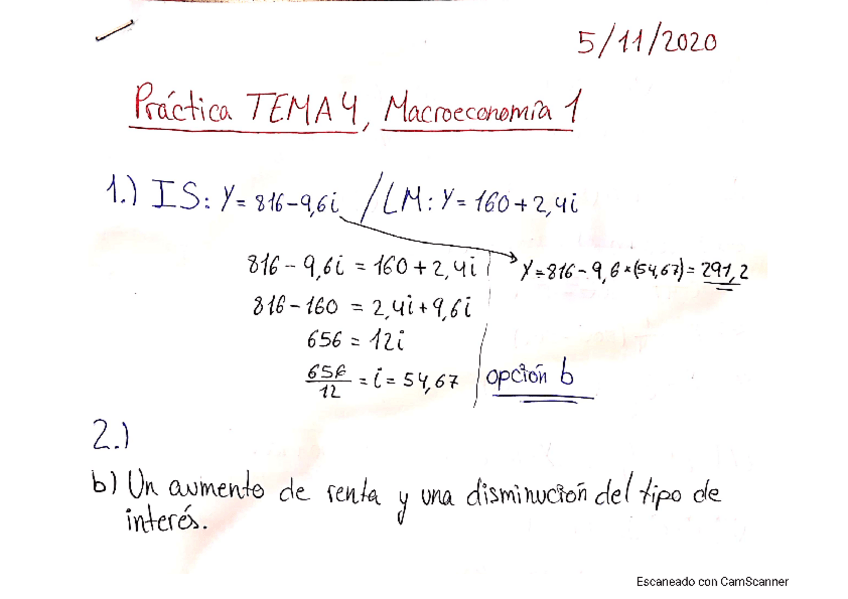 5/11/2020
Práctica TEMA 4, Macroeconomía 1
1.) IS: Y= 816-9,6i / LM: Y= 160+2,4i
816-9,6i = 160+2,4i Y=816-9,6*(54,67)= 291,2
816-160 = 2,4i+9,6i
656 = 12i
656/12 = i = 54,67 opción b
2.)
b) Un aumento de renta y una disminución del tipo de
interés.
Escaneado con CamScanner